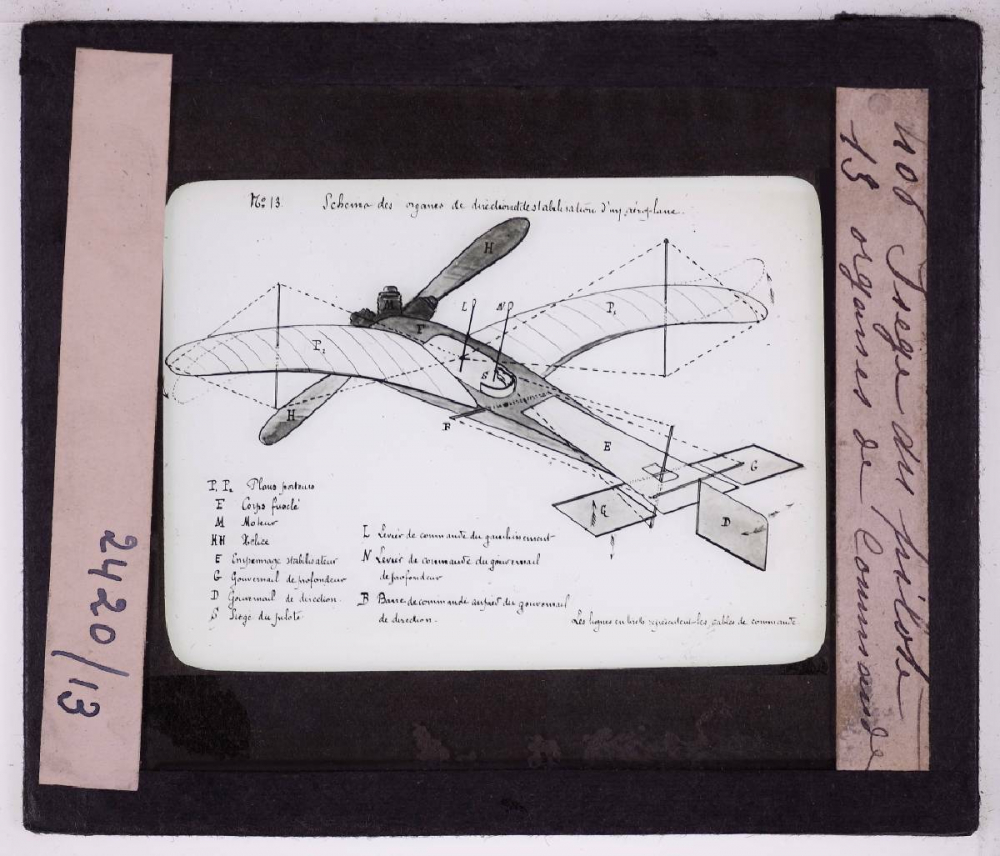 No 13. Schema des organes de direction et de stabilisation d'un aéroplane.
H
M
F
L
N
P1
P2
S
H
B
E
G
G
D
P1 P2 Plans porteurs
F Corps fuselé
M Moteur
HH Hélice
E Empennage stabilisateur
G Gouvernail de profondeur
D Gouvernail de direction.
S Siège du pilote
L Levier de commande du gauchissement
N Levier de commande du gouvernail
de profondeur
B Barre de commande au pied du gouvernail
de direction.
Les lignes en traits représentent les cables de commande.
2420/13
Siege du pilote
13 organes de Commande